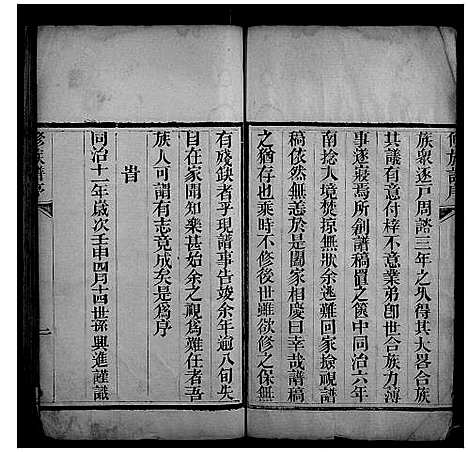 修族譜序
族眾逐戶周諮三年之久得其大畧合族
共議有意付梓不意業弟卽世合族力薄
事遂寢焉所創譜稿置之篋中同治六年
南捻入境焚掠無狀余逃難回家撿視譜
稿依然無恙於是闔家相慶曰幸哉譜稿
之猶存也乘時不修後世雖欲修之保無
有殘缺者乎現譜事告竣余年逾八旬矣
目在家聞知樂甚始余之視為難任者吾
族人可謂有志竟成矣是為序
旹
同治十一年歲次壬申四月十四世孫興進謹識
修族譜序
一